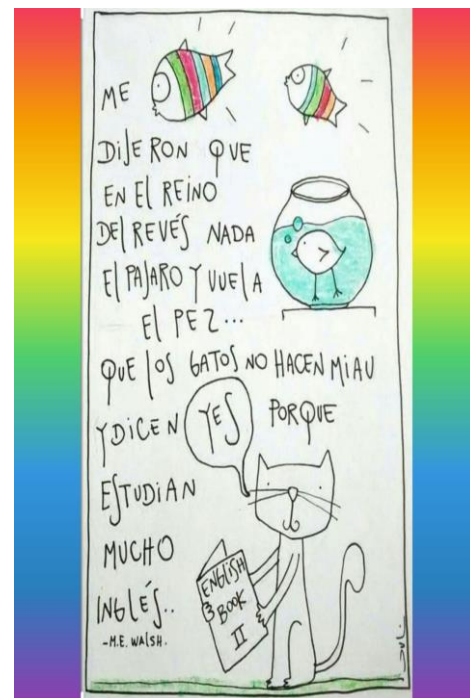 ME
DIJERON QUE
EN El REINO
DEl REVÉS NADA
El PAJARO Y VUElA
El PEZ...
QUE lOS GATOS NO HACEN MIAU
Y DICEN YES PORQUE
ESTUDIAN
MUCHO
INGlÉS..
-M.E. WAlSH.
ENGlISH
BOOK
II